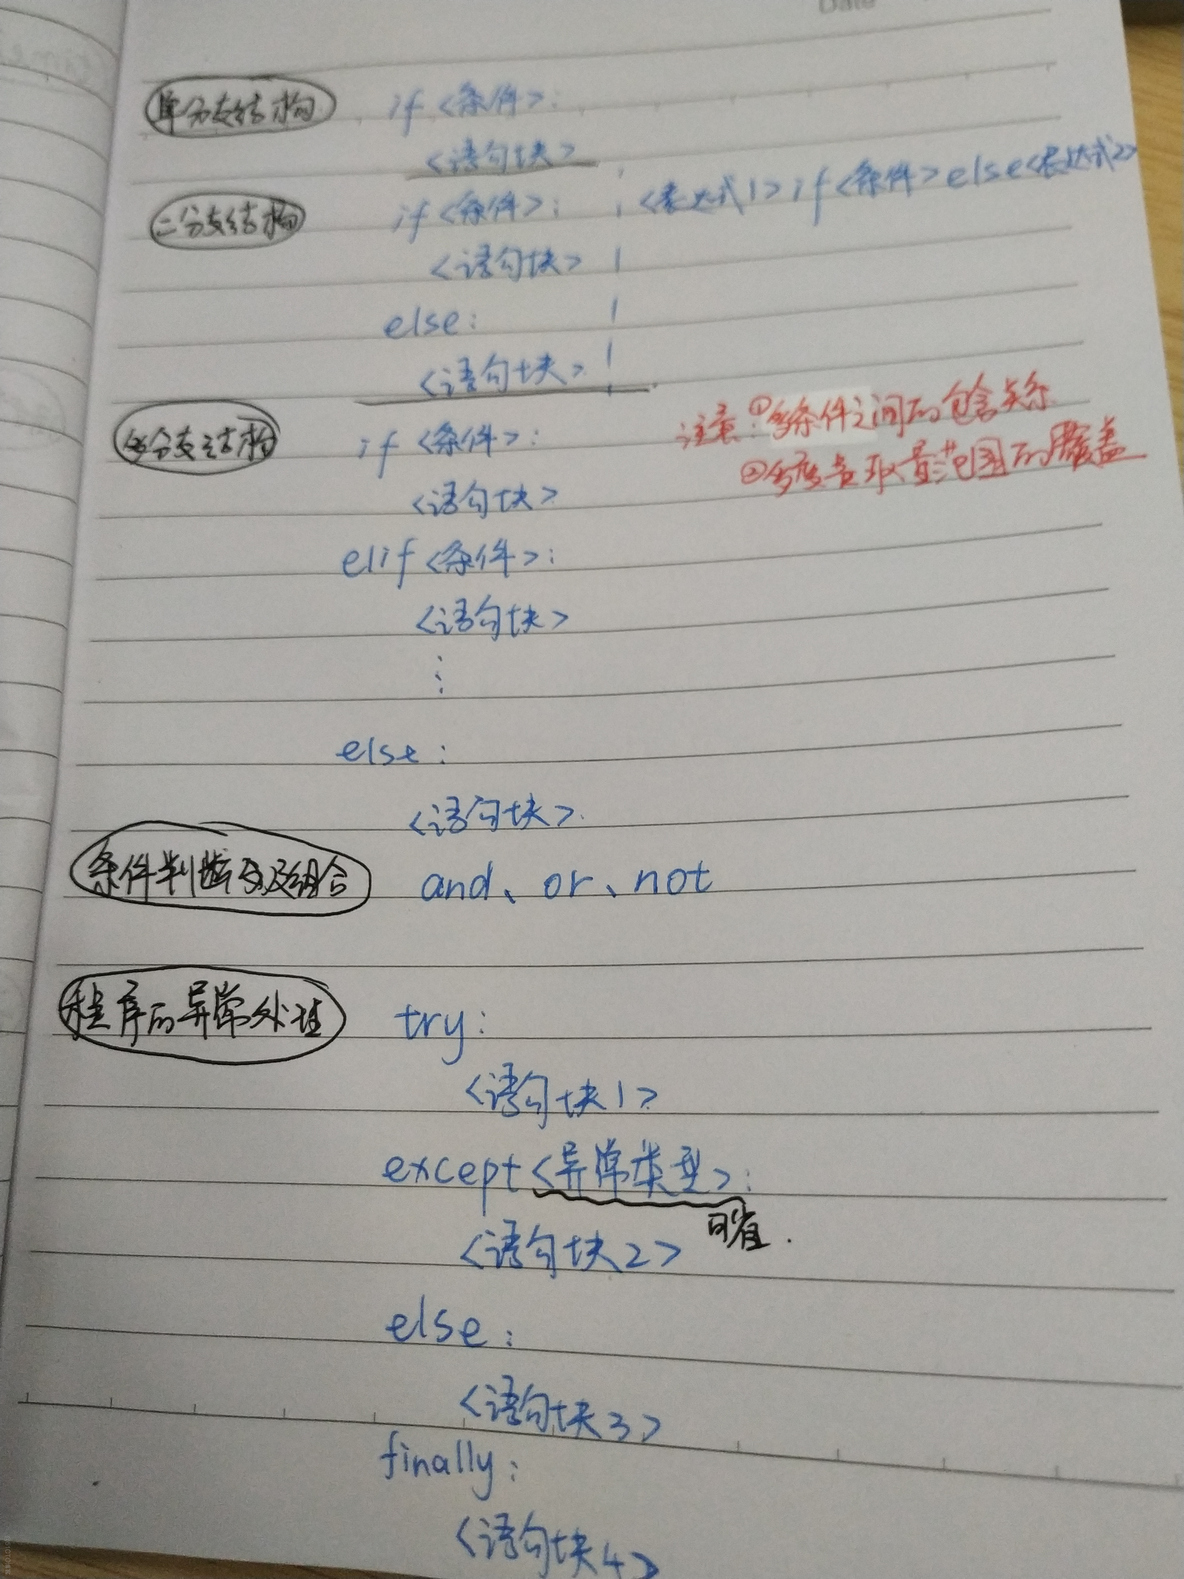 Date
单分支结构 if <条件>:
<语句块>
二分支结构 if <条件>: <表达式1> if <条件> else <表达式2>
<语句块>
else:
<语句块>
多分支结构 if <条件>: 注意:①多条件之间的包含关系
②变量取量范围的覆盖
<语句块>
elif <条件>:
<语句块>
⋮
else:
<语句块>
条件判断及组合 and、or、not
程序的异常处理 try:
<语句块1>
except <异常类型>:
可省.
<语句块2>
else:
<语句块3>
finally:
<语句块4>